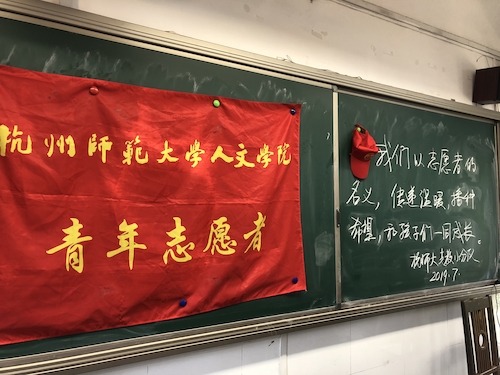 杭州师范大学人文学院
青年志愿者
我们以志愿者的
名义，传递温暖，播种
希望，和孩子们一同成长。
杭师大支教小分队
2019.7.